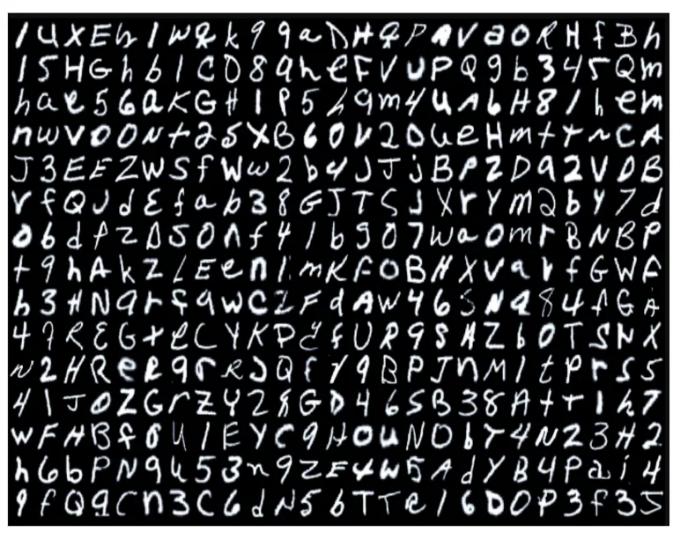 1 4 X E h 1 W Q k 9 9 a D H Q P A V a O R H f B h
1 5 H G h b 1 C D 8 9 h e F V U P Q 9 b 3 4 5 Q m
h a e 5 6 a K G H 1 P 5 h 9 m 4 U A b H 8 1 h e m
n w v 0 0 N t 2 5 X B 6 0 V 2 0 u e H m t r n C A
J 3 E E Z W S f W w 2 b 4 J J j B P Z D 9 2 V D B
r f Q J d E f a b 3 8 G J T S J X r Y m 2 b Y 7 d
0 b d P Z D 5 0 n f 4 1 b 9 0 7 w a 0 m r B N B P
t 9 h A k Z 1 E e n 1 m K F O B N X v a r f G W F
h 3 H N 9 r f 9 w C Z F d A W 4 6 S N 9 8 4 f G A
4 7 R E G t e C Y K P Z f U R 9 S N Z b 0 T S N X
N 2 H R e R 9 r R J Q r Y 9 B P J n M 1 t P r S 5
4 1 J 0 Z G r Z Y 2 8 G D 4 6 5 B 3 8 A t r 1 h 7
W F H B f 0 U 1 E Y C 9 H O u N O b 7 4 N 2 3 H 2
h 6 b P N 9 4 5 3 n 9 Z F 4 W 5 A d Y B 4 P a i 4
9 f Q 9 C n 3 C 6 d N 5 b T T e 1 6 D O P 3 f 3 5